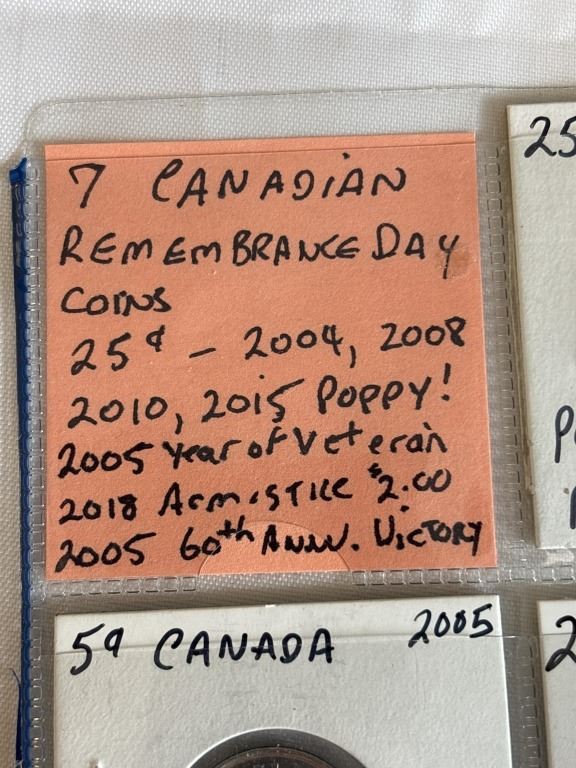 7 CANADIAN
REMEMBRANCE DAY
COINS
25¢ - 2004, 2008
2010, 2015 POPPY!
2005 Year of Veteran
2018 Armistice $2.00
2005 60th ANNV. VICTORY
25
P
5¢ CANADA 2005
2